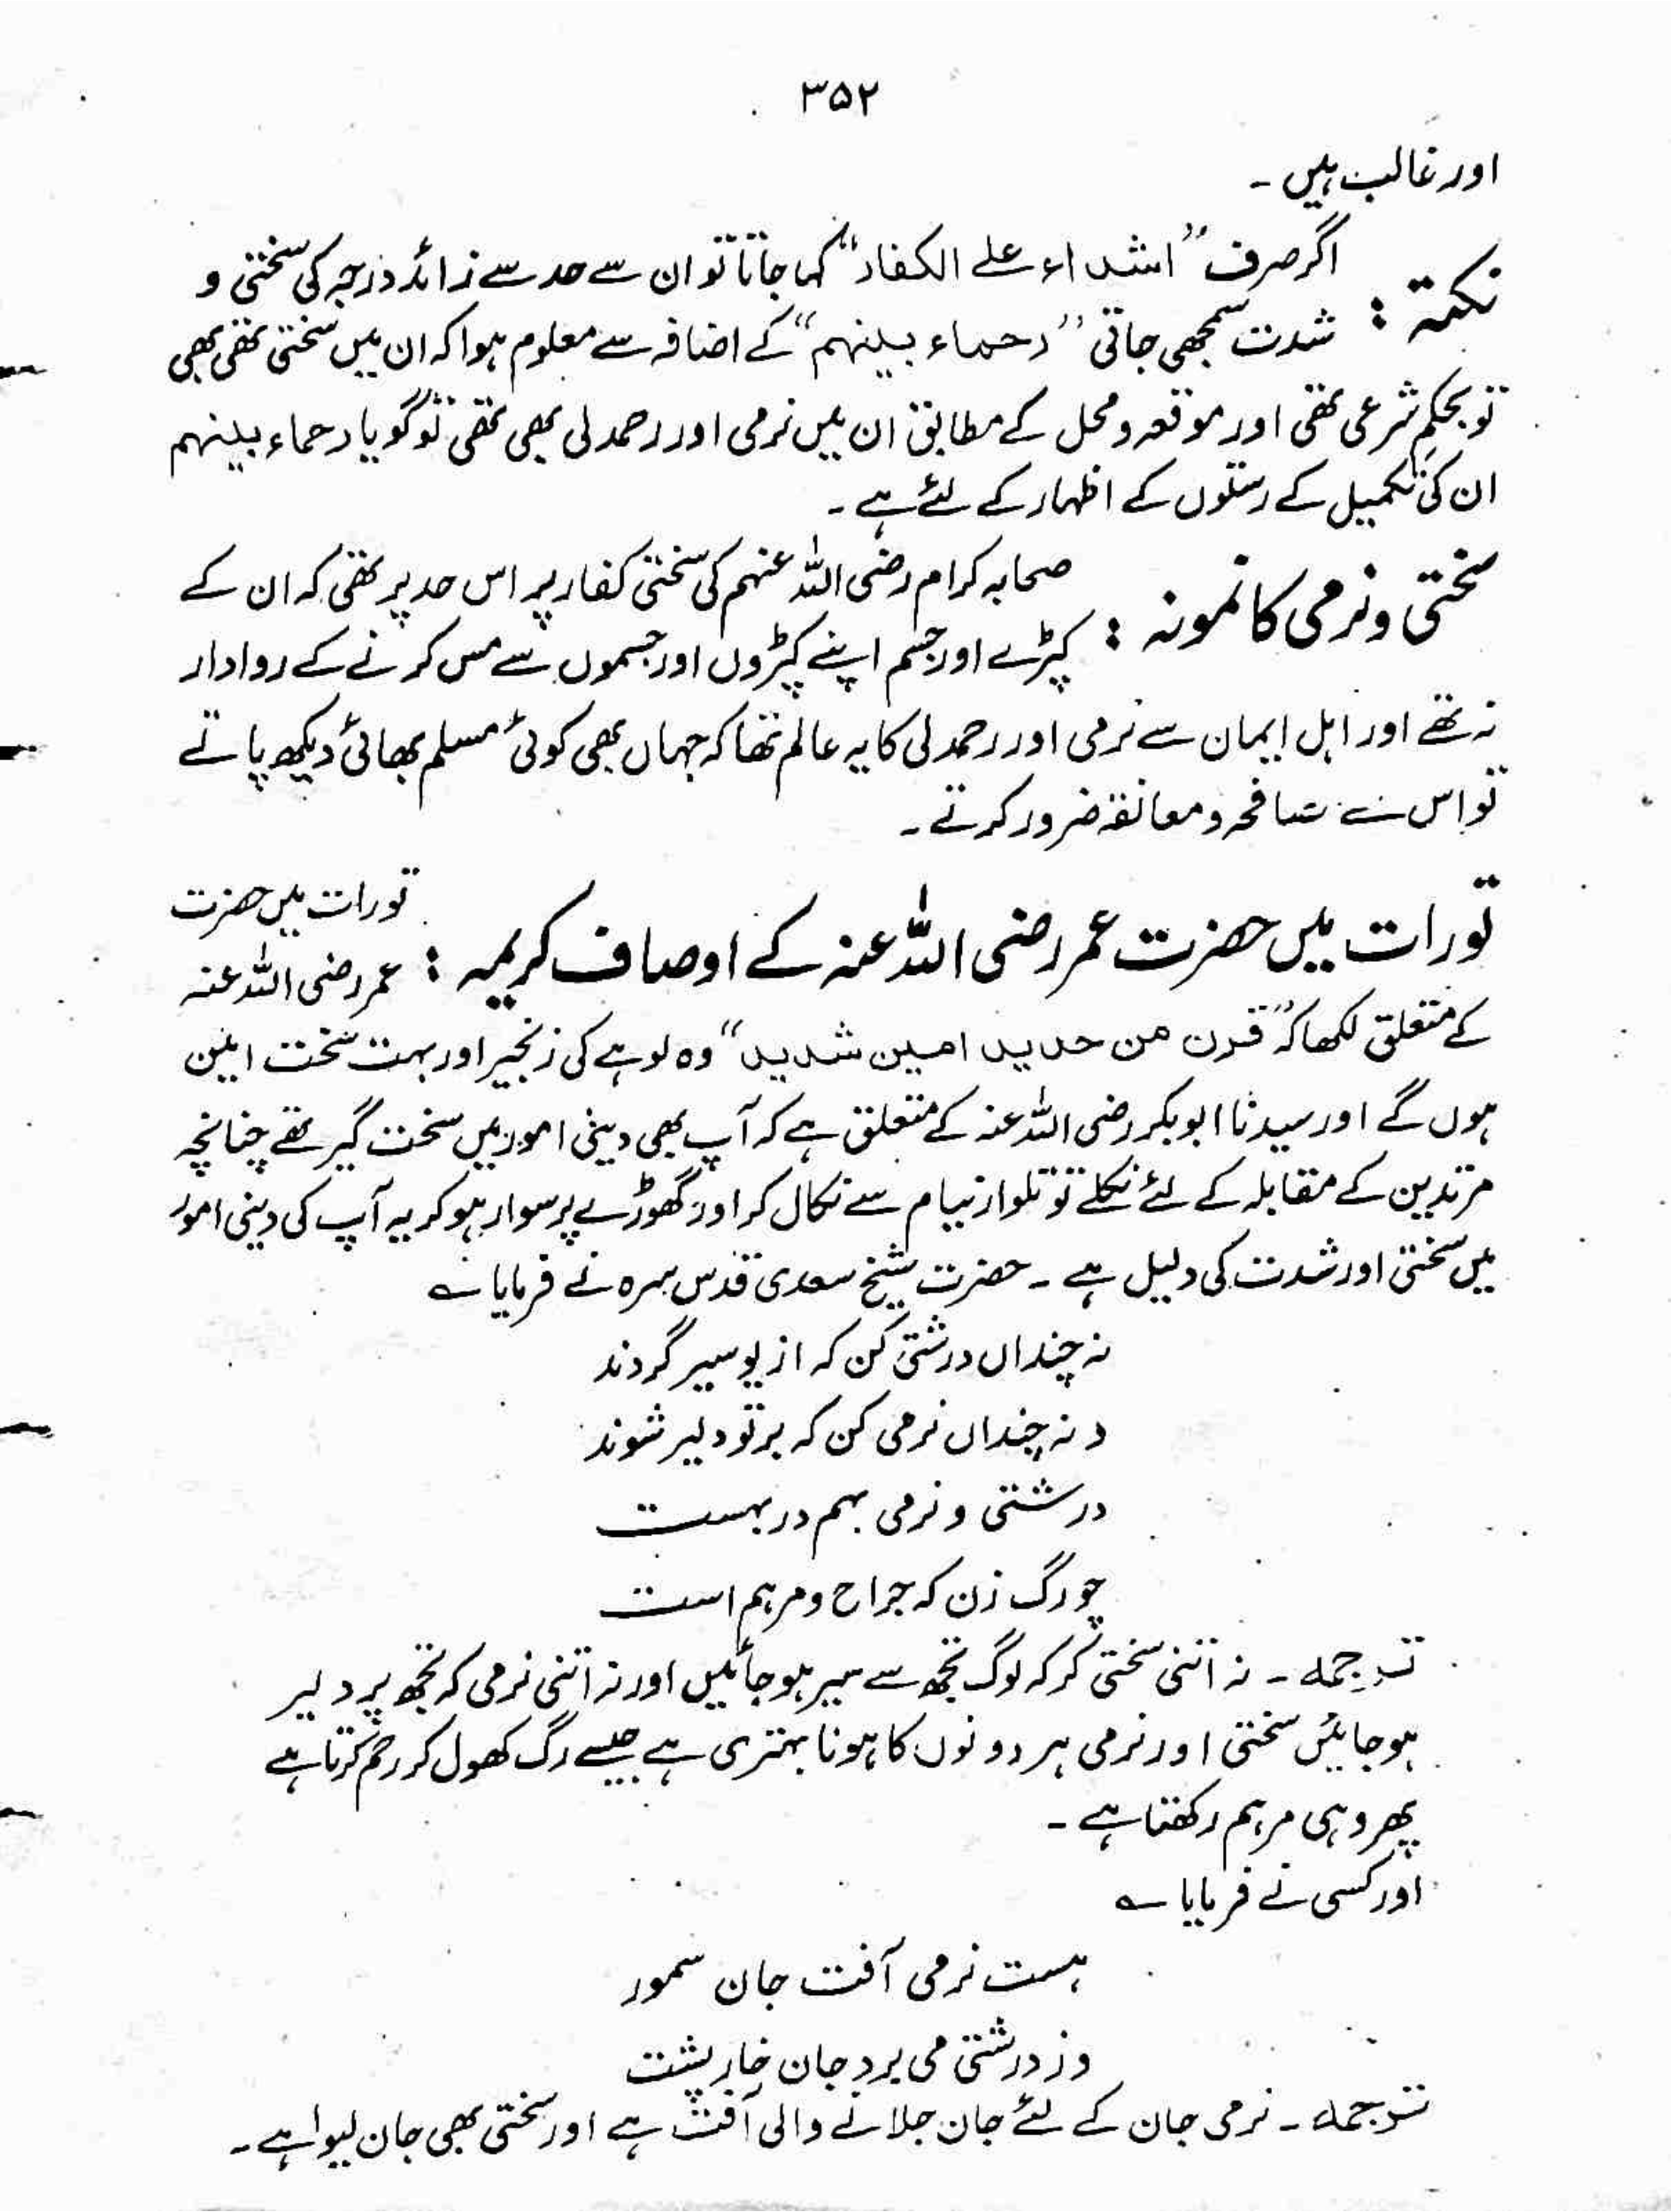 ۳۵۲
اور غالب ہیں ۔
نکتہ : اگر صرف ”اشداء علے الکفار“ کہا جاتا تو ان سے حد سے زائد درجہ کی سختی و
شدت سمجھی جاتی ”رحماء بینہم“ کے اضافہ سے معلوم ہوا کہ ان میں سختی تھی بھی
تو بحکمِ شرعی تھی اور موقعہ و محل کے مطابق ان میں نرمی اور رحمدلی بھی تھی تو گویا رحماء بینہم
ان کی تکمیل کے رستوں کے اظہار کے لئے ہے ۔
سختی و نرمی کا نمونہ : صحابہ کرام رضی اللہ عنہم کی سختی کفار پر اس حد پر تھی کہ ان کے
کپڑے اور جسم اپنے کپڑوں اور جسموں سے مس کرنے کے روادار
نہ تھے اور اہل ایمان سے نرمی اور رحمدلی کا یہ عالم تھا کہ جہاں بھی کوئی مسلم بھائی دیکھ پاتے
تو اس سے مصافحہ و معانقہ ضرور کرتے ۔
تورات میں حضرت عمر رضی اللہ عنہ کے اوصاف کریمہ : تورات میں حضرت
عمر رضی اللہ عنہ
کے متعلق لکھا کہ ”قرن من حدید امین شدید“ وہ لوہے کی زنجیر اور بہت سخت امین
ہوں گے اور سیدنا ابوبکر رضی اللہ عنہ کے متعلق ہے کہ آپ بھی دینی امور میں سخت گیر تھے چنانچہ
مرتدین کے مقابلہ کے لئے نکلے تو تلوار نیام سے نکال کر اور گھوڑے پر سوار ہو کر یہ آپ کی دینی امور
میں سختی اور شدت کی دلیل ہے ۔ حضرت شیخ سعدی قدس سرہ نے فرمایا ؎
نہ چنداں درشتی کن کہ از یو سیر گردند
د نہ چنداں نرمی کن کہ بر تو دلیر شوند
درشتی و نرمی بہم در بہست
چو رگ زن کہ جراح و مرہم است
ترجمہ ۔ نہ اتنی سختی کر کہ لوگ تجھ سے سیر ہو جائیں اور نہ اتنی نرمی کہ تجھ پر دلیر
ہو جائیں سختی اور نرمی ہر دونوں کا ہونا بہتری ہے جیسے رگ کھول کر رحم کرتا ہے
پھر وہی مرہم رکھتا ہے ۔
اور کسی نے فرمایا ؎
ہست نرمی آفت جان سمور
وز درشتی می برد جان خار پشت
ترجمہ ۔ نرمی جان کے لئے جان جلانے والی آفت ہے اور سختی بھی جان لیوا ہے ۔